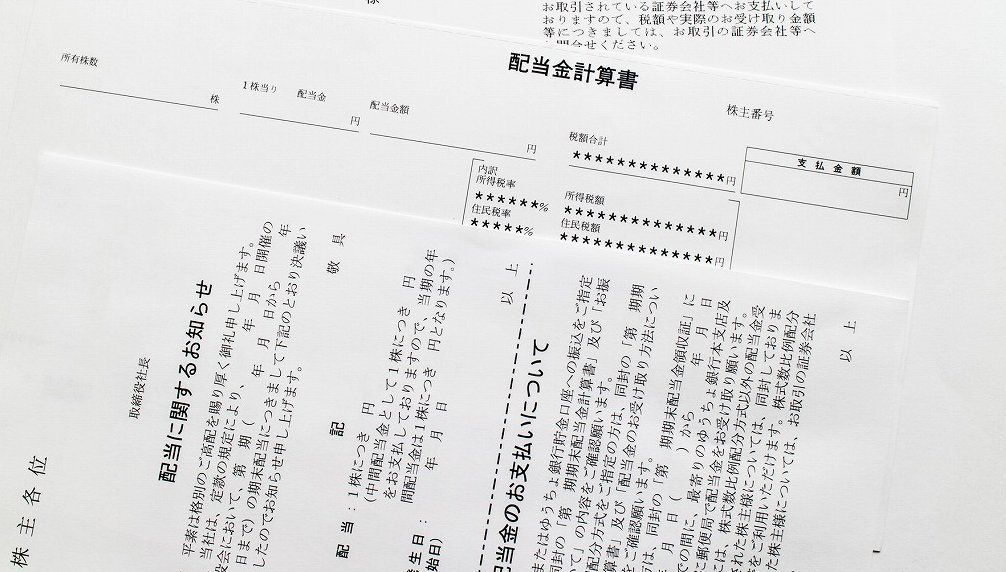 様
お取引されている証券会社等へお支払いして
おりますので、税額や実際のお受け取り金額
等につきましては、お取引の証券会社等へ
お問合せください。
配当金計算書
所有株数
株
1株当り 配当金
円
配当金額
円
株主番号
税額合計
**************円
支払金額
円
内訳
所得税率
******%
住民税率
*****%
所得税額
**************円
住民税額
**************円
株主各位
取締役社長
配当に関するお知らせ
平素は格別のご高配を賜り厚く御礼申し上げます。
当社は、定款の規定により、 年 月 日開催の
役会において、第 期( 年 月 日から 年
日まで)の期末配当につきまして下記のとおり決議い
したのでお知らせ申し上げます。
敬 具
記
配 当:1株につき 円
(中間配当金として1株につき 円
をお支払しておりますので、当期の年
間配当金は1株につき 円となります。)
発生日: 年 月 日
開始日)
以 上
配当金のお支払いについて
またはゆうちょ銀行貯金口座への振込をご指定
同封の「第 期期末配当金計算書」及び「お振
いて」の内容をご確認願います。
配分方式をご指定の方は、同封の「第 期期
算書」及び「配当金のお受け取り方法につい
をご確認願います。
方は、同封の「第 期期末配当金領収証」に
月 日( )から 年 月 日
での間に、最寄りのゆうちょ銀行本支店及
に郵便局で配当金をお受け取り願います。
には、株式数比例配分方式以外の配当金受
された株主様については、同封しておりま
をご利用いただけます。株式数比例配分
た株主様については、お取引の証券会社
以 上